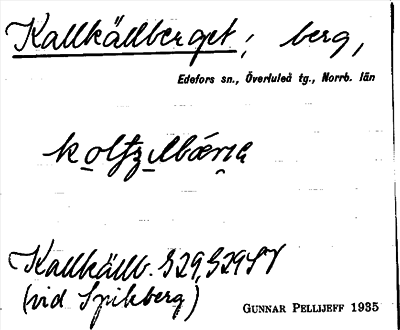 Kallkällberget; berg,
Edefors sn., Överluleå tg., Norrb. län
Kallkällb. S29, S29SV
(vid Spikberg)
GUNNAR PELLIJEFF 1935